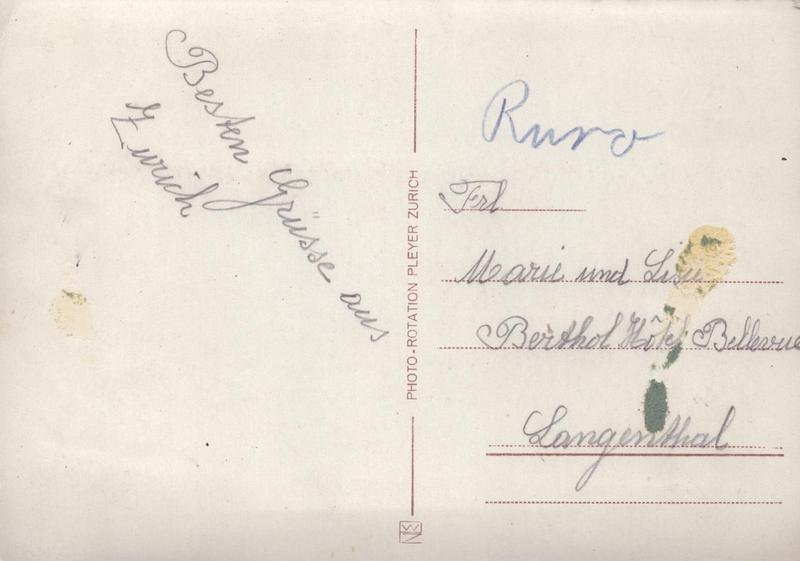 Besten Grüsse aus
Zurich
PHOTO-ROTATION PLEYER ZURICH
Runo
Frl
Marie und Lisu
Berthol Hôtel Bellevue
Langenthal